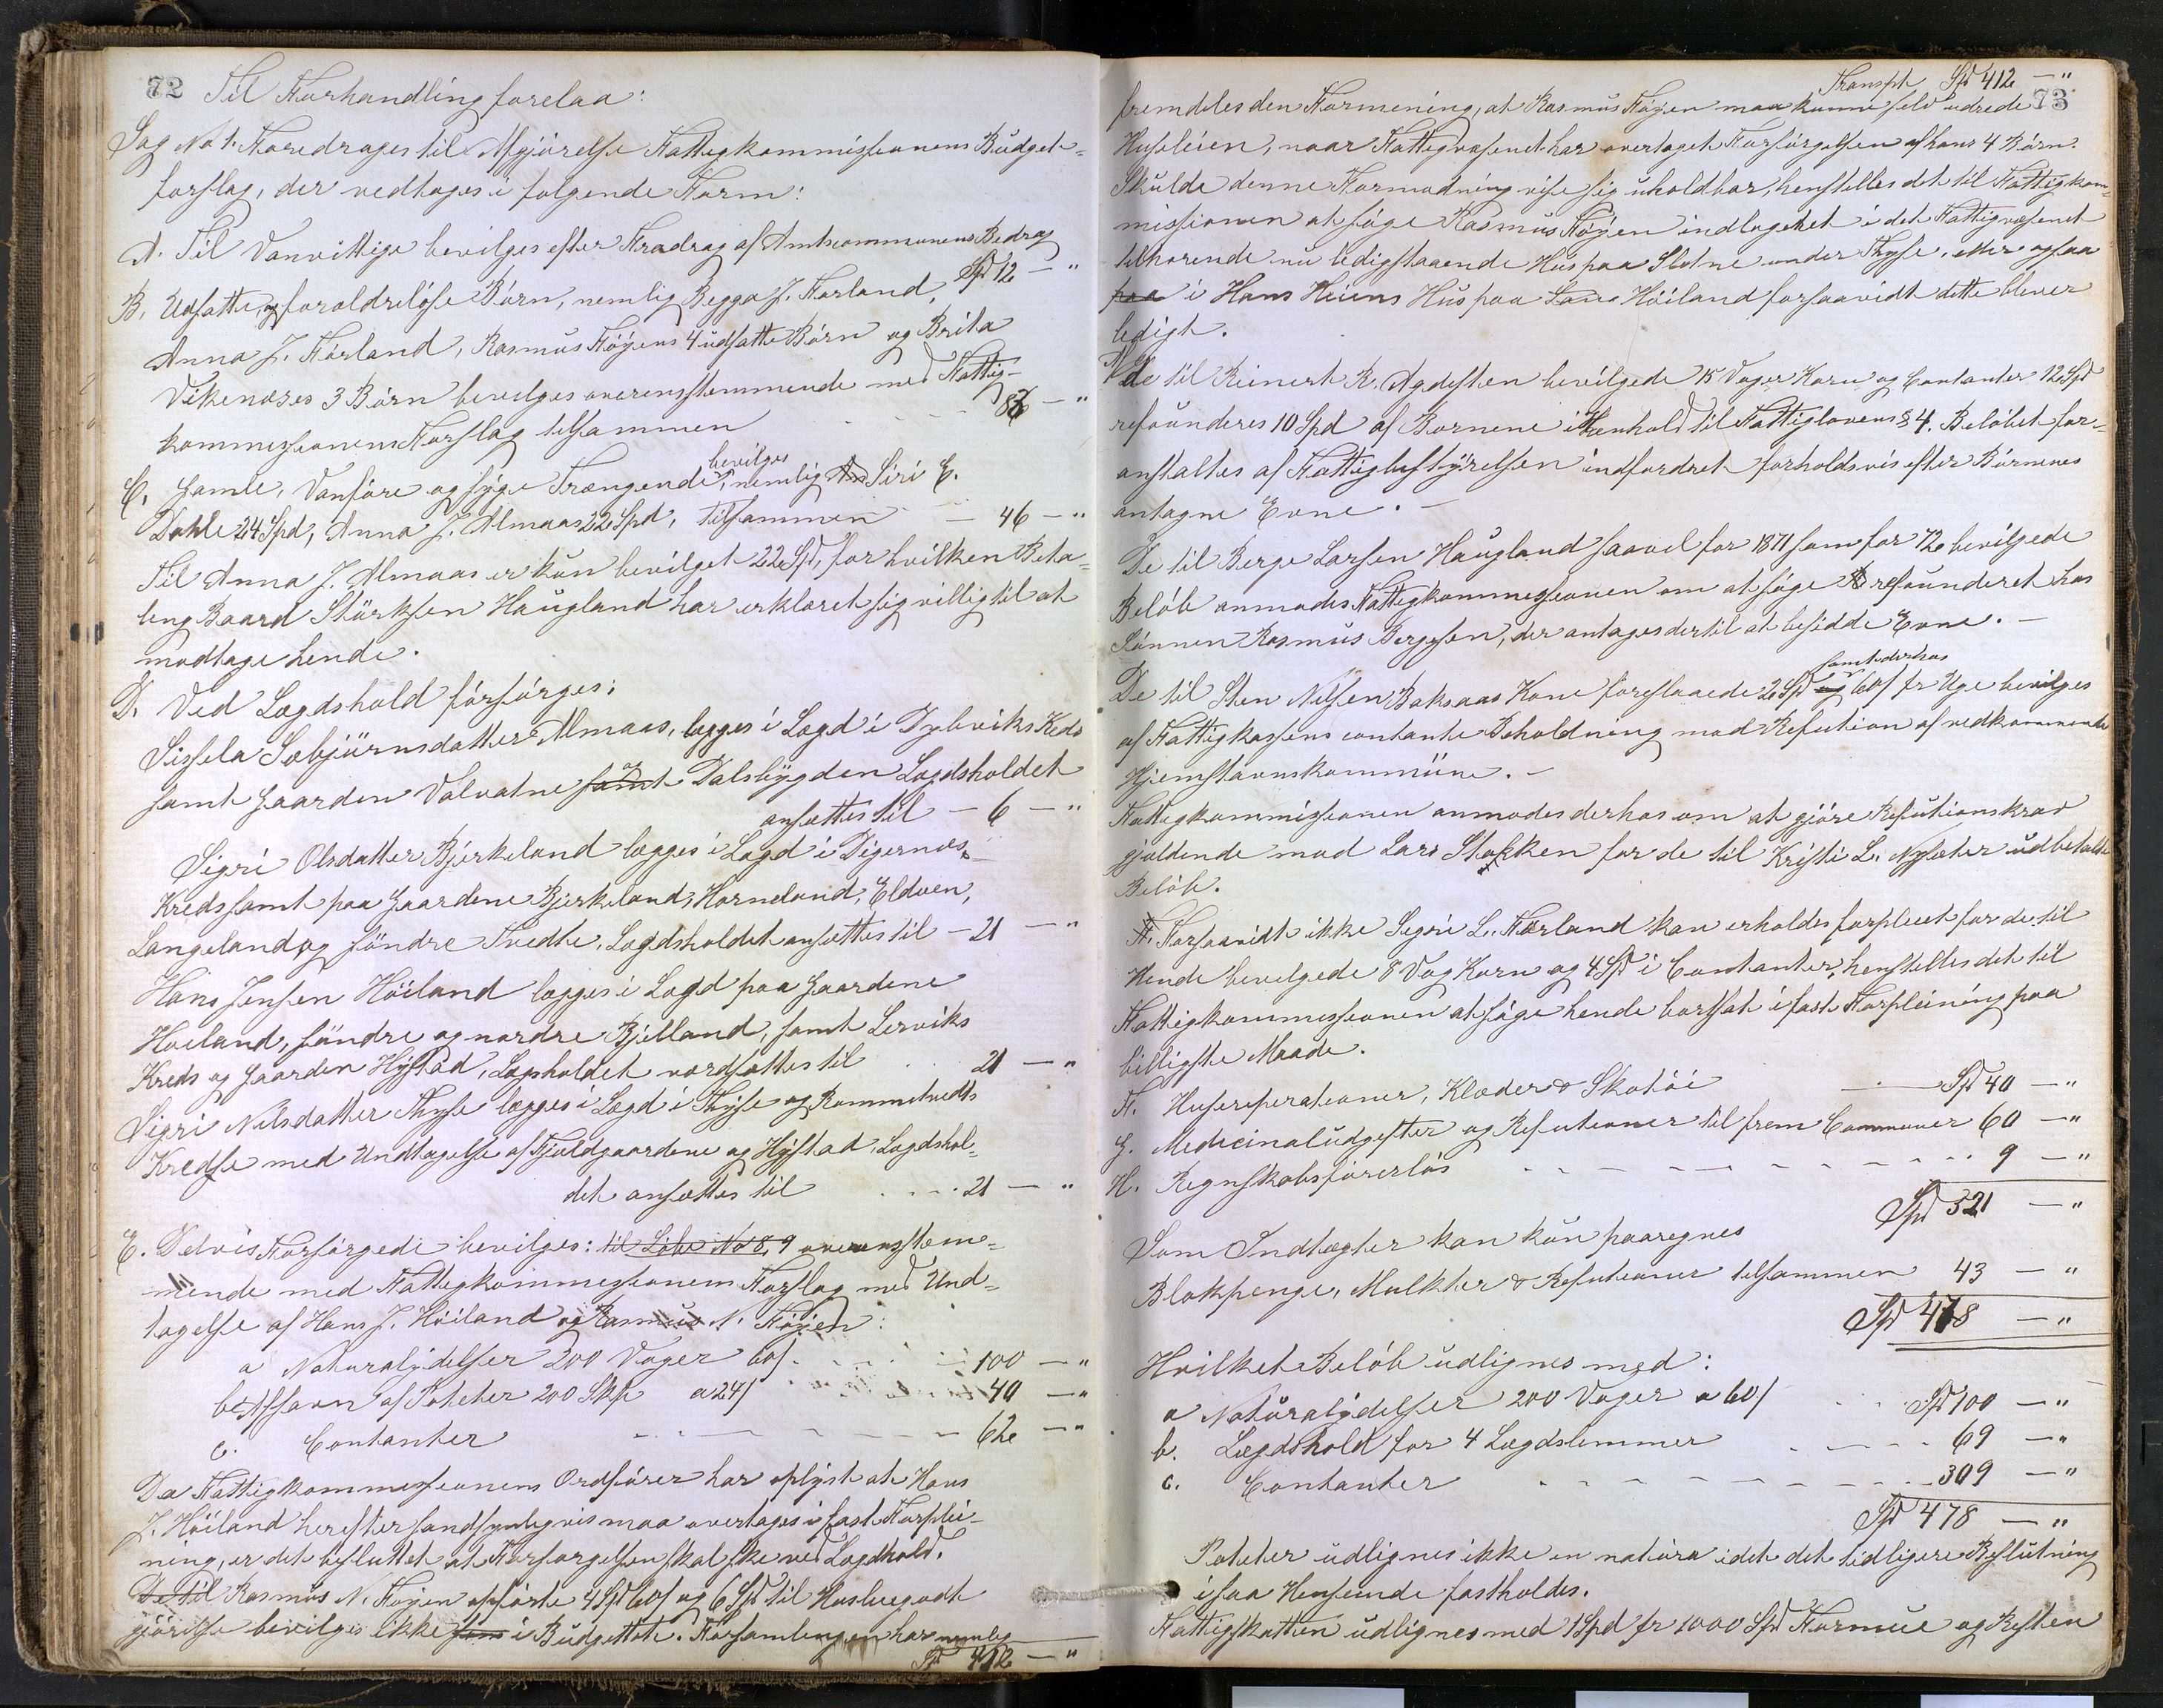 72 Til Forhandling forelaa:
Sag No 1. Foredrages til Afgjörelse Fattigkommissionens Budget-
forslag, der vedtoges i folgende Form:
A. Til Vanvittige bevilges efter Fradrag af Amtscommunens Bedrag
Spd 12 — "
B. Udsatte, og foroldrelöse Börn, nemlig Begga J. Förland,
Anna J. Förland, Rasmus Flöjens 4 udsatte Börn og Brita
Vikenæses 3 Börn bevilges overensstemmende med Fattig-
kommissionens Forslag tilsammen — "
bevilges
C. Gamle, Vanföre og syge Trængende, nemlig Siri E.
Dahle 24 Spd, Anna J. Almaas 22 Spd, tilsammen — 46 — "
Til Anna J. Almaas er kun bevilget 22 Spd, for hvilken Beta-
ling Baard Störksen Haugland har erklæret sig villig til at
modtage hende.
D. Ved Lægdshold försörges:
Sissela Sæbjörnsdatter Almaas, lægges i Lægd i Dybviks Kreds
samt Gaarden Valvatne samt og Dalsbygden Lægdsholdet
ansættes til — 6 — "
Sigri Olsdatter Bjerkeland lægges i Lægd i Digernæs
Kreds samt paa Gaardene Bjerkeland, Horneland, Eldöen,
Langeland og söndre Tvedte, Lægdsholdet ansættes til — 21 — "
Hans Jensen Höiland lægges i Lægd paa Gaardene
Hoeland, söndre og nordre Bjelland, samt Lerviks
Kreds og Gaarden Hystad, Lægsholdet værdsættes til 21 — "
Sigri Nilsdatter Thyse lægges i Lægd i Thyse og Rommetvedts
Kredse med Undtagelse af Fjeldgaardene og Hystad, Lægdshol-
det ansættes til 21 — "
E. Delvis Forsörgede bevilges: til Löbe No 8, 9 overensstem-
mende med Fattigkommissionens Forslag med Und-
tagelse af Hans J. Höiland og Rasmus N. Flöjen:
a Naturalydelser 200 Voger 60ß 100 — "
b. Afsavn af Poteter 200 Skp a 24ß 40 — "
c. Contanter — 62 — "
Da Fattigkommissionens Ordförer har oplyst at Hans
J. Höiland herefter sandsynligvis maa overtages i fast Forplei-
ning, er det besluttet at Forsorgelsen skal ske ved Lægdhold.
De til Rasmus N. Flöjen opförte 4 Spd 60ß og 6 Spd til Husleiegodt
gjörelse bevilges ikke som i Budgettet. Forsamlingen har nemlig
Spd 412 — "
Transpt Spd 412 — "
73
fremdeles den Formening, at Rasmus Flöjen maa kunne selv udrede
Husleien, naar Fattigvæsenet har overtaget Forsörgelsen af hans 4 Börn.
Skulde denne Formodning vise sig uholdbar, henstilles det til Fattigkom-
missionen at söge Rasmus Flöjen indlogeret i det Fattigvæsenet
tilhorende nu ledigstaaende Hus paa Sletne under Thyse, eller ogsaa
paa i Hans Heiens Hus paa Höiland forsaavidt dette bliver
ledigt.
De til Reinert R. Agdesten bevilgede 15 Voger Korn og Contanter 12 Spd
refounderes 10 Spd af Börnene i Henhold til Fattiglovens § 4. Belöbet for-
anstaltes af Fattigbestyrelsen indfordret forholdsvis efter Börnenes
antagne Evne. —
De til Berge Larsen Haugland saavel for 1871 som for 72 bevilgede
Belöb anmodes Fattigkommissionen om at söge refounderet hos
Sönnen Rasmus Bergesen, der antages dertil at besidde Evne. —
samt derhos
De til Sten Nilsen Boksaas Kone foreslaaede 2 Spd og 60ß pr Uge bevilges
af Fattigkassens contante Beholdning mod Refution af vedkommende
Hjemstavnskommune. —
Fattigkommissionen anmodes derhos om at gjöre Refutionskrav
gjældende mod Lars Stokken for de til Kristi L. Nysæter udbetalte
Belöb.
Forsaavidt ikke Sigri L. Förland kan erholdes forpleiet for de til
Hende bevilgede 8 Vog Korn og 4 Spd i Contanter, henstilles det til
Fattigkommissionen at söge hende bortsat i fast Forpleining paa
billigste Maade.
F. Husreperationer, Klæder & Skotöi — Spd 40 — "
G. Medicinaludgifter og Refutioner til frem Communer 60 — "
H. Regnskabsförerlön 9 — "
Spd 521 — "
Som Indtægter kan kun paaregnes
Blokpenge, Mulkter & Refutioner tilsammen 43 — "
Spd 478 — "
Hvilket Belöb udlignes med:
a Naturalydelser 200 Voger a 60ß Spd 100 — "
b. Lægdshold for 4 Lægdslemmer 69 — "
c. Contanter 309 — "
Spd 478 — "
Poteter udlignes ikke in natura idet det tidligere Beslutning
i saa Henseende fastholdes.
Fattigskatten udlignes med 1 Spd pr 1000 Spd Formue og Resten